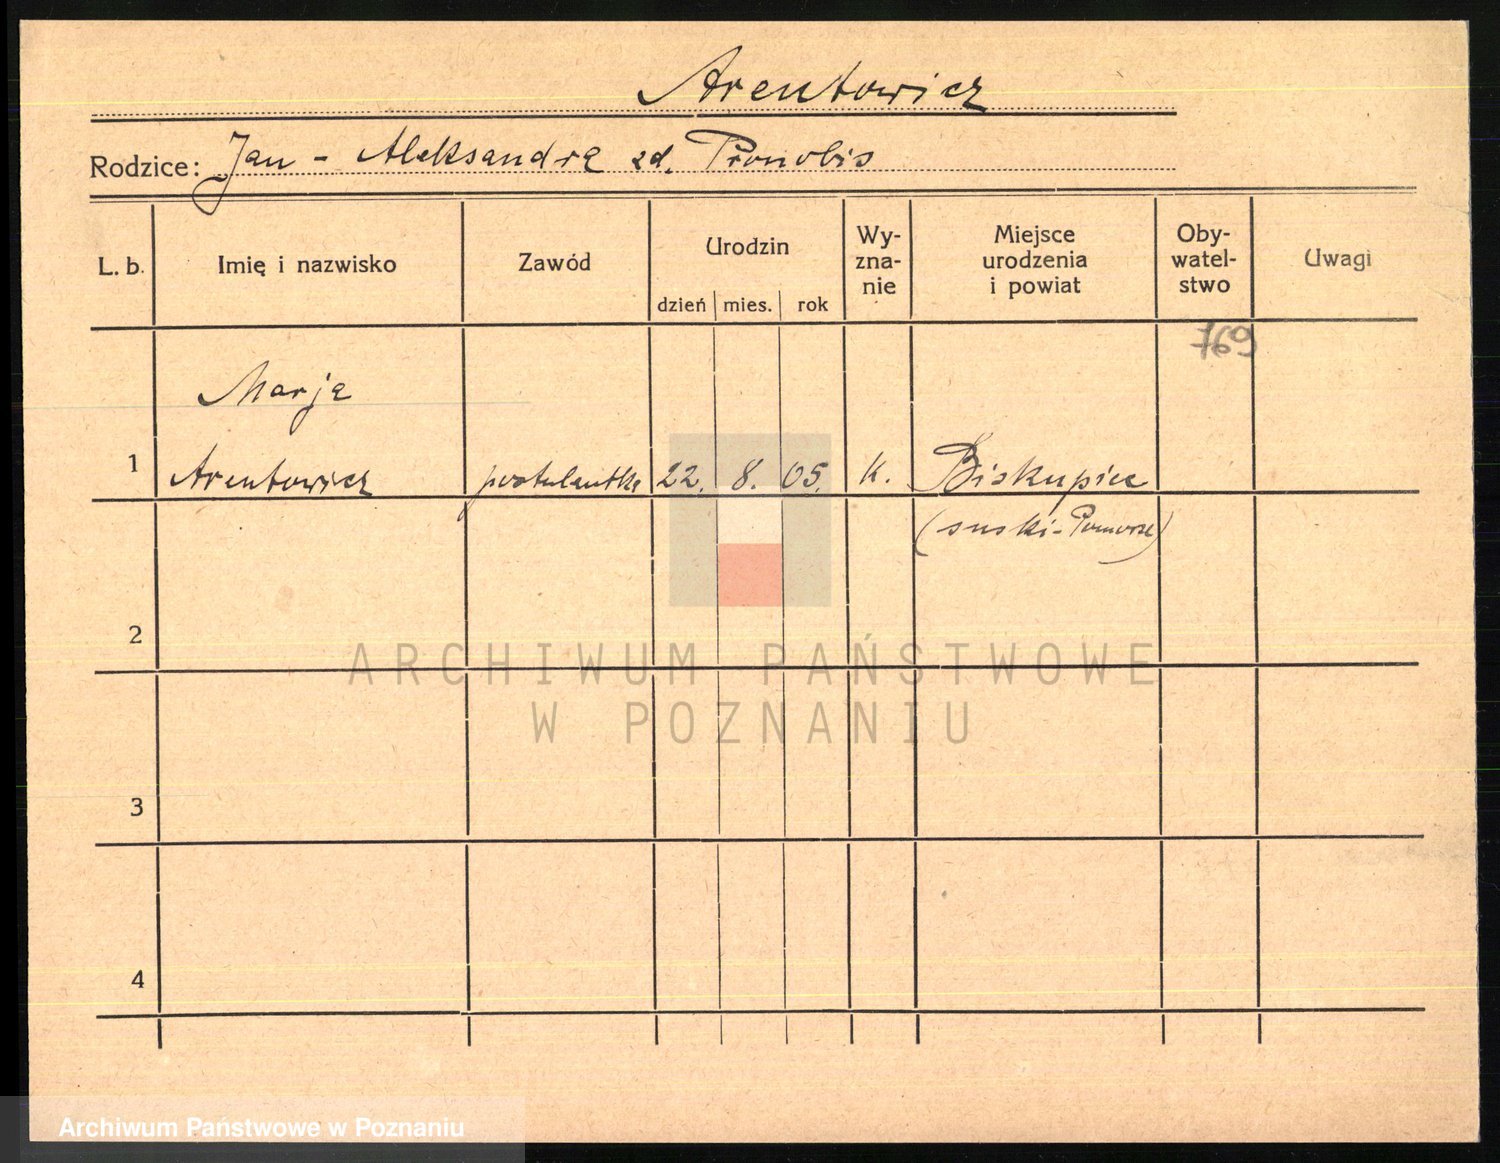 Arentowicz
Rodzice: Jan - Aleksandra zd. Pronobis
L. b.
Imię i nazwisko
Zawód
Urodzin
dzień mies. rok
Wy-
zna-
nie
Miejsce
urodzenia
i powiat
Oby-
watel-
stwo
Uwagi
769
Marja
1 Arentowicz postulantka 22. 8. 05. k. Biskupiec
(suski-Pomorze)
2
ARCHIWUM PAŃSTWOWE
W POZNANIU
3
4
Archiwum Państwowe w Poznaniu